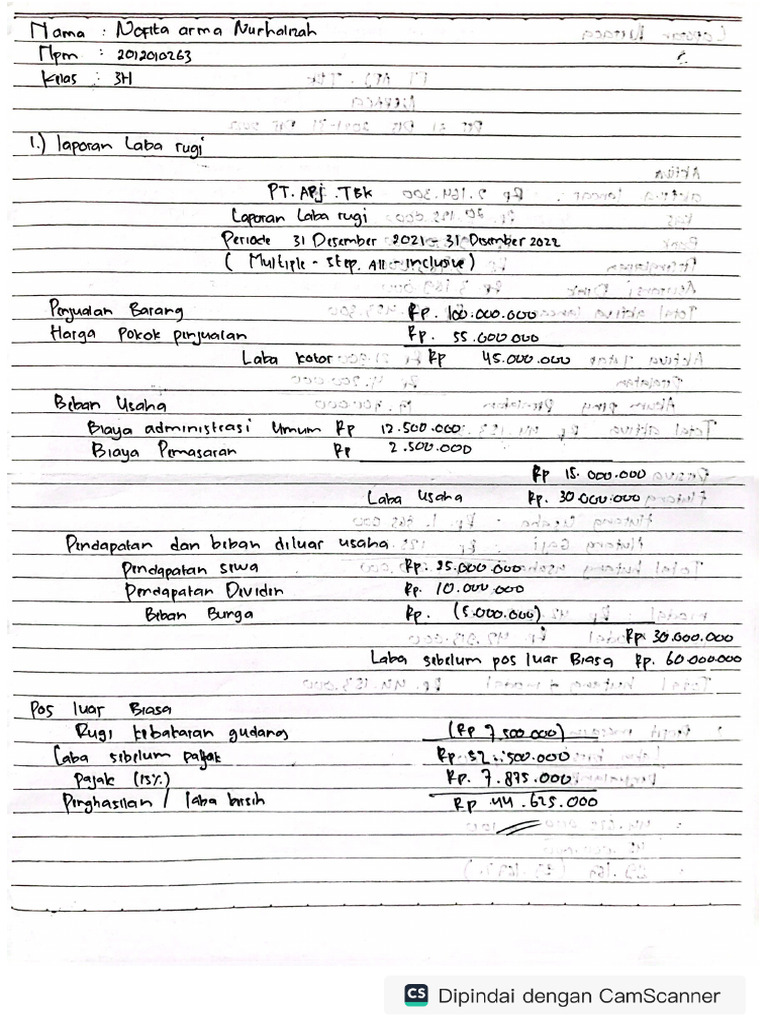 Nama : Nofita arma Nurhalizah
Npm : 2012010263
Kelas : 3H
1.) laporan Laba rugi
PT. APJ .TBK
Laporan Laba rugi
Periode 31 Desember 2021 - 31 Desember 2022
( Multiple - Step. All - Inclusive )
Penjualan Barang Rp. 100.000.000
Harga Pokok penjualan Rp. 55.000.000
Laba kotor Rp 45.000.000
Beban Usaha
Biaya administrasi Umum Rp 12.500.000
Biaya Pemasaran Rp 2.500.000
Rp 15.000.000
Laba Usaha Rp. 30.000.000
Pendapatan dan beban diluar usaha
Pendapatan sewa Rp. 25.000.000
Pendapatan Dividen Rp. 10.000.000
Beban Bunga Rp. (5.000.000)
Rp 30.000.000
Laba sebelum pos luar Biasa Rp. 60.000.000
Pos luar Biasa
Rugi kebakaran gudang (Rp 7.500.000)
Laba sebelum pajak Rp. 52.500.000
Pajak (15%) Rp. 7.875.000
Penghasilan / laba bersih Rp 44.625.000
CS Dipindai dengan CamScanner